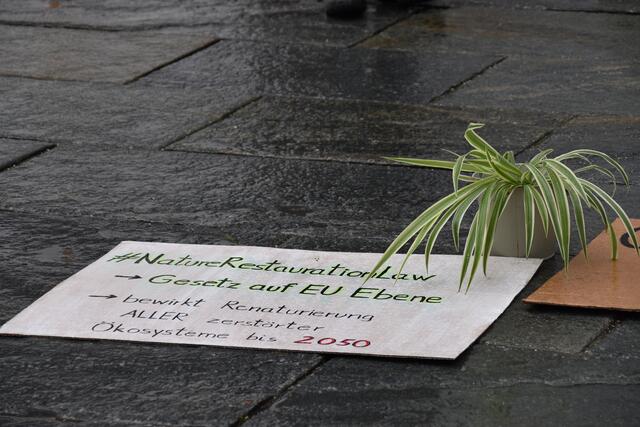 #NatureRestaurationLaw
→ Gesetz auf EU Ebene
→ bewirkt Renaturierung
ALLER zerstörter
Ökosysteme bis 2050